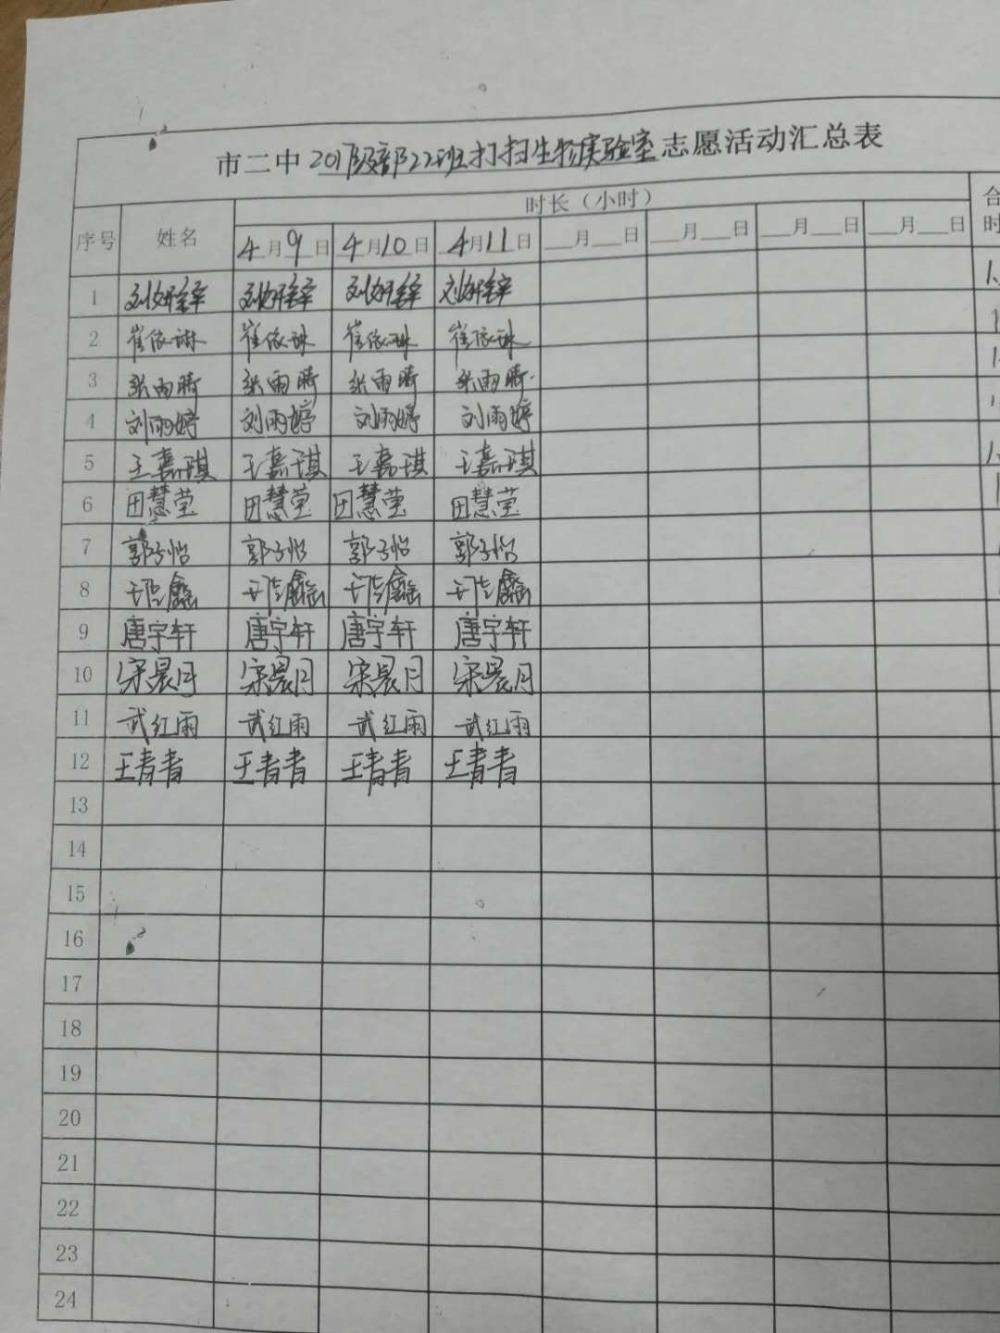 市二中2017级部22班打扫生物实验室志愿活动汇总表
序号 姓名 时长（小时） 合
4月9日 4月10日 4月11日 __月__日 __月__日 __月__日 __月__日 时
1 刘妍 刘妍 刘妍 刘妍
2 崔依琳 崔依琳 崔依琳 崔依琳
3 张雨晴 张雨晴 张雨晴 张雨晴
4 刘雨婷 刘雨婷 刘雨婷 刘雨婷
5 王嘉琪 王嘉琪 王嘉琪 王嘉琪
6 田慧莹 田慧莹 田慧莹 田慧莹
7 郭子怡 郭子怡 郭子怡 郭子怡
8 王 王 王 王
9 唐宇轩 唐宇轩 唐宇轩 唐宇轩
10 宋晨月 宋晨月 宋晨月 宋晨月
11 武红雨 武红雨 武红雨 武红雨
12 王青青 王青青 王青青 王青青
13
14
15
16
17
18
19
20
21
22
23
24